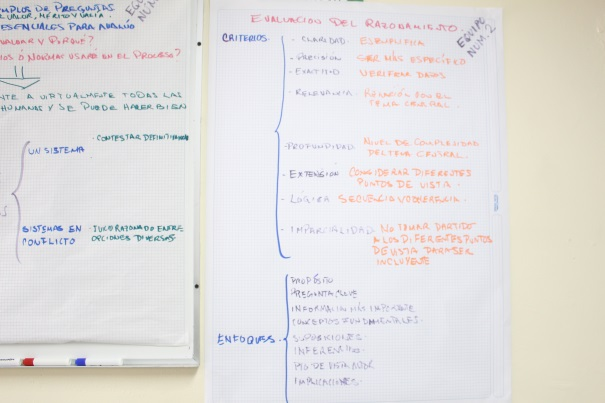 MPLOS DE PREGUNTAS
VALOR, MÉRITO Y VALIA
ESENCIALES PARA
EQUIPO
NUM.
EVALUAR Y PORQUÉ?
RIOS Ó NORMAS USADO EN EL PROCESO?
NTE A VIRTUALMENTE TODAS LAS
HUMANAS Y SE PUEDE HACER BIEN
UN SISTEMA
- CONTESTAR
SISTEMAS EN
CONFLICTO
- JUICIO RAZONADO ENTRE
OPCIONES DIVERSAS
EVALUACION DEL RAZONAMIENTO.
EQUIPO
NUM. 2
CRITERIOS
- CLARIDAD: EJEMPLIFICA
- PRECISIÓN SER MÁS ESPECÍFICO
- EXACTITUD VERIFICA DATOS
- RELEVANCIA: RELACIÓN CON EL
TEMA CENTRAL.
- PROFUNDIDAD NIVEL DE COMPLEJIDAD
DEL TEMA CENTRAL.
- EXTENSIÓN CONSIDERAR DIFERENTES
PUNTOS DE VISTA.
- LÓGICA: SECUENCIA Y COHERENCIA.
- IMPARCIALIDAD: NO TOMAR PARTIDO
A LOS DIFERENTES PUNTOS
DE VISTA PARA SER
INCLUYENTE
ENFOQUES
PROPÓSITO
PREGUNTA CLAVE
INFORMACIÓN MÁS IMPORTANTE
CONCEPTOS FUNDAMENTALES.
SUPOSICIONES
INFERENCIAS
PTO DE VISTA
IMPLICACIONES.